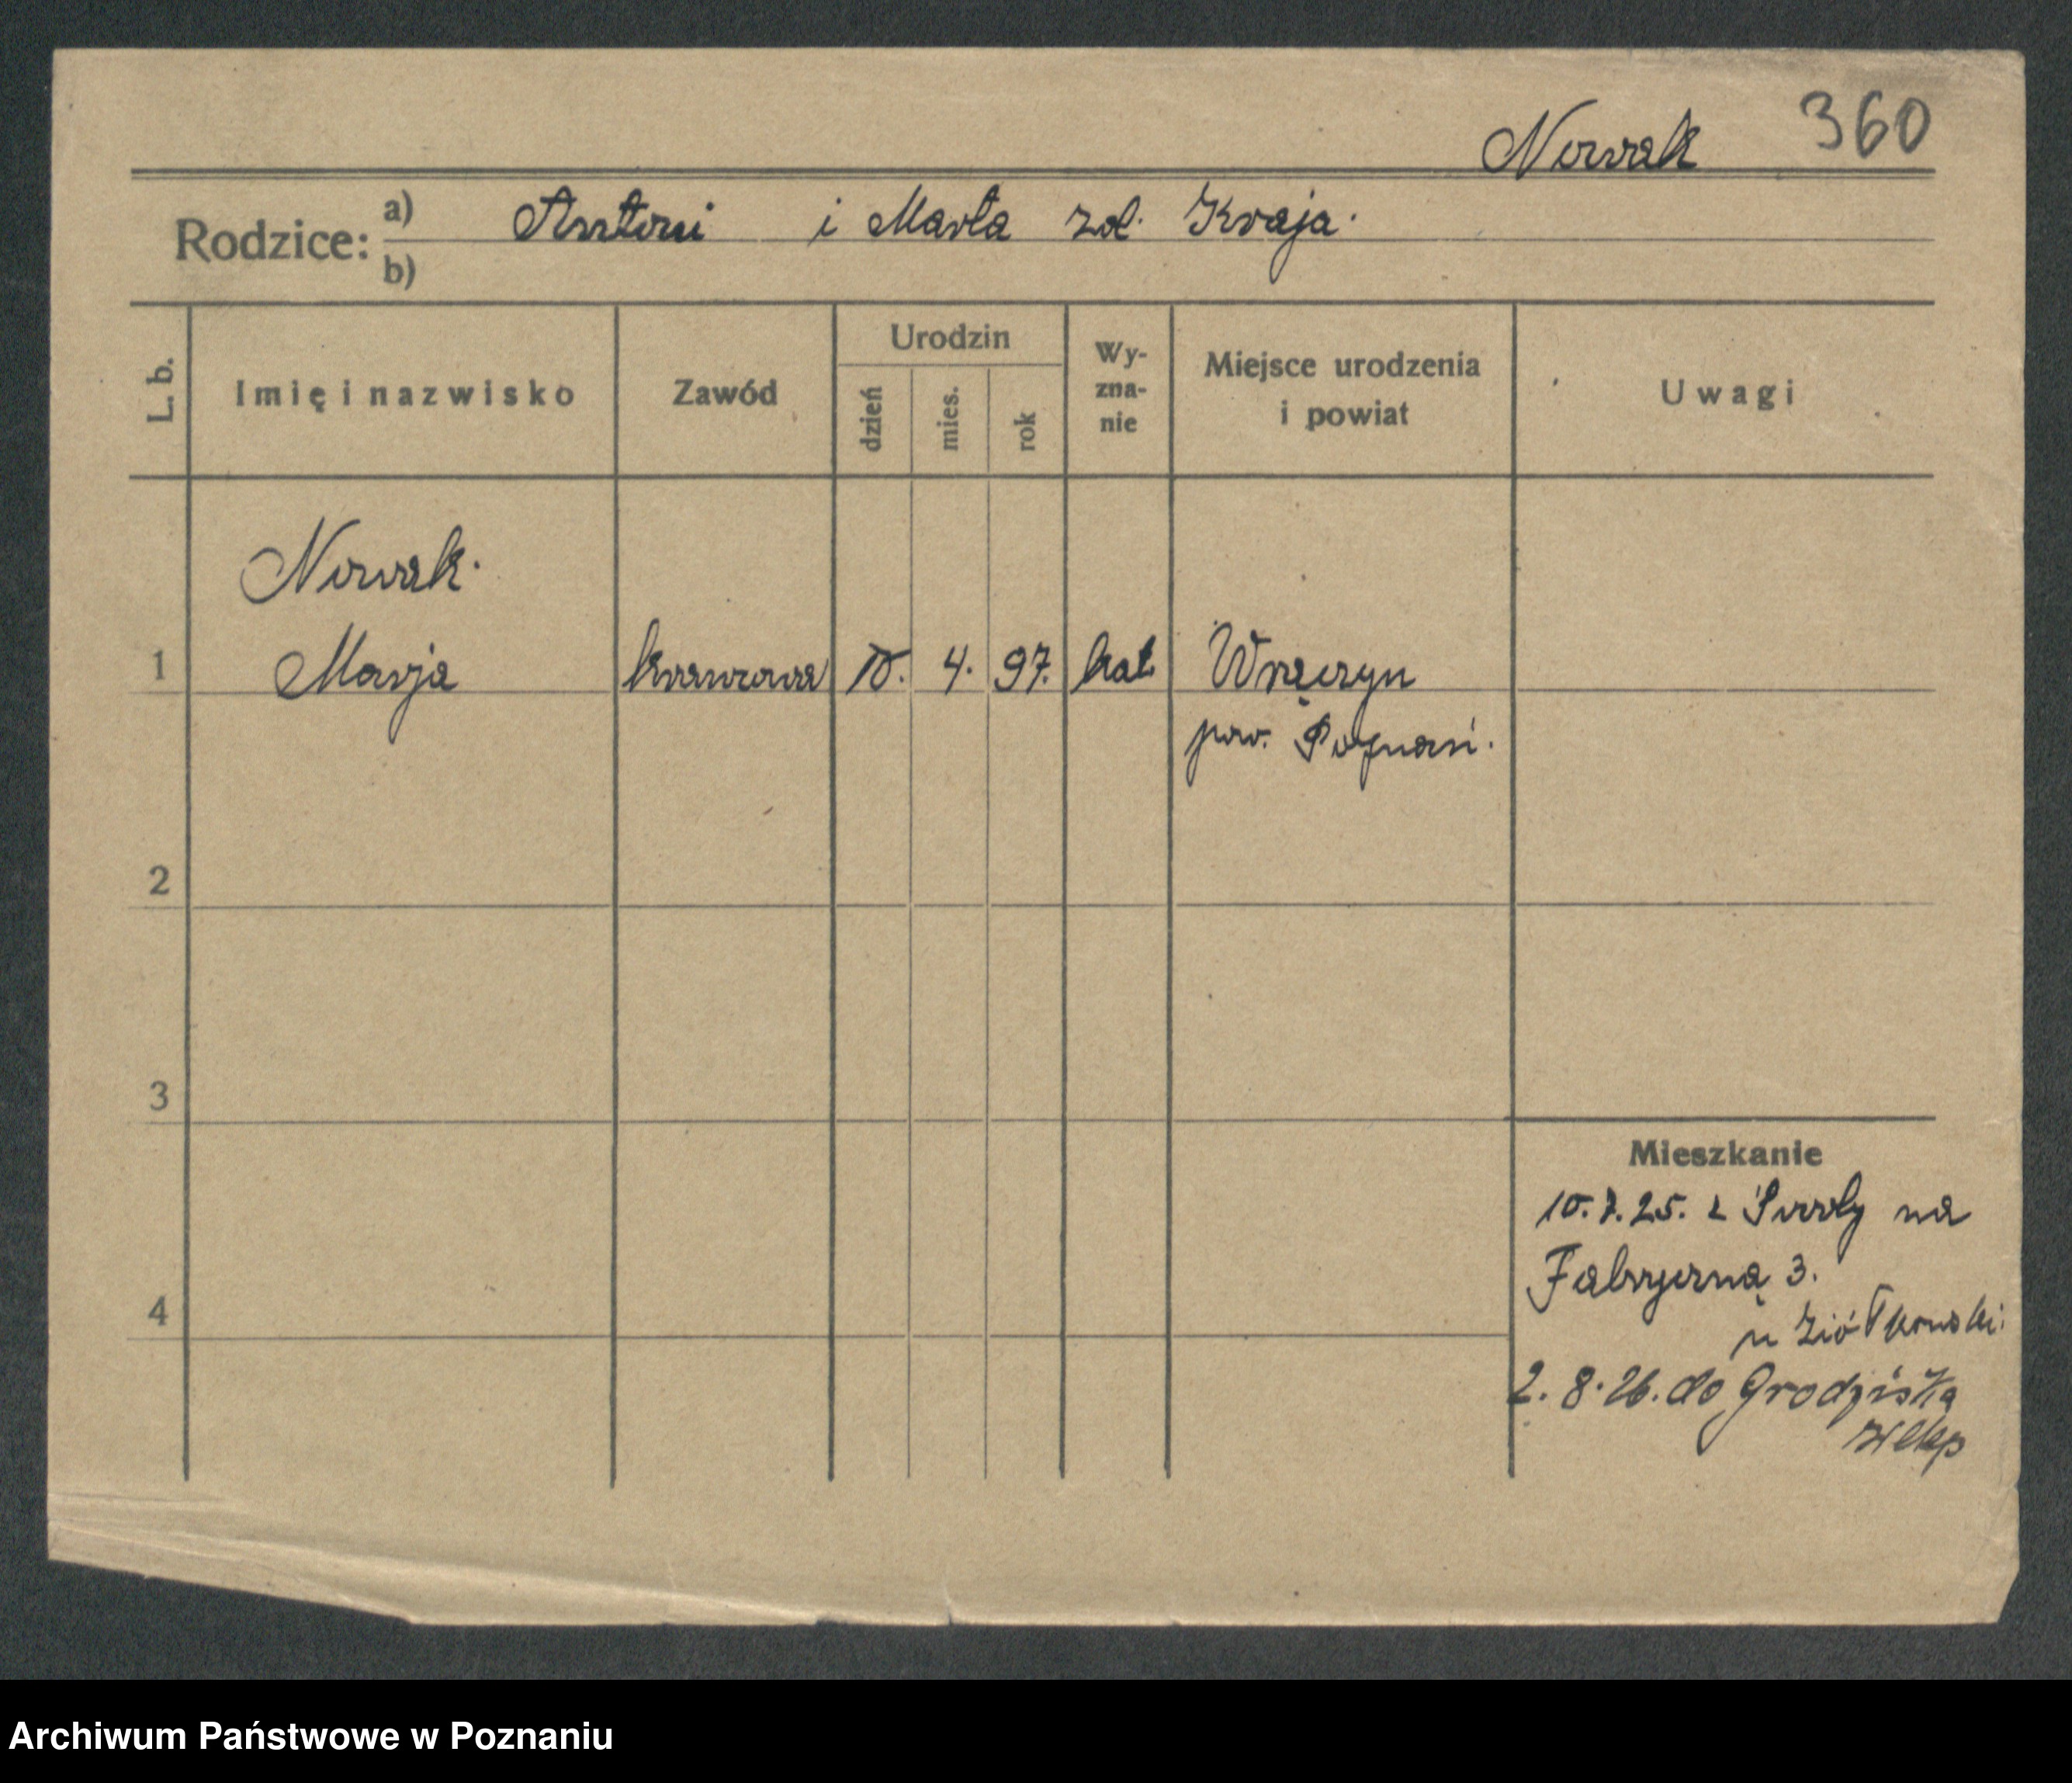 Nowak 360
Rodzice: a) Antoni i Marta zd. Kraja.
b)
L. b.
Imię i nazwisko
Zawód
Urodzin
dzień
mies.
rok
Wy-
zna-
nie
Miejsce urodzenia
i powiat
Uwagi
Nowak.
1 Marja krawcowa 10. 4. 97. kat. Wręczyn
pow. Poznań.
2
3
Mieszkanie
10.7.25. z Środy na
Fabryczną 3.
4
u Ziółkowski.
2. 8. 26. do Grodziska
Wlkp
Archiwum Państwowe w Poznaniu